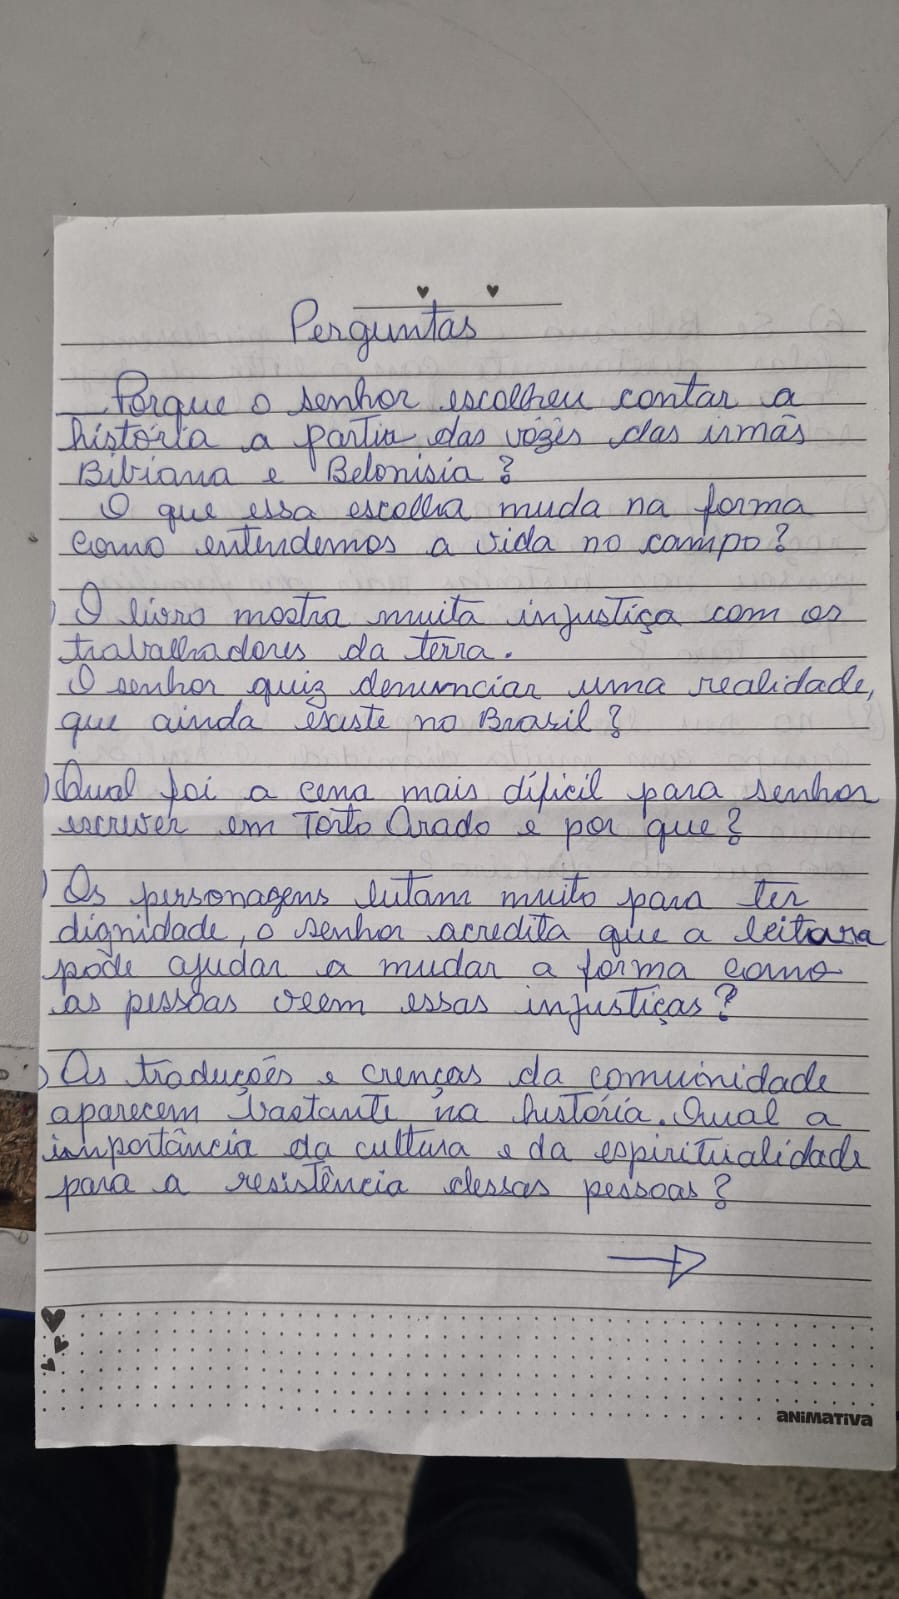 Perguntas
Porque o senhor escolheu contar a
história a partir das vózes das irmãs
Bibiana e Belonisia?
O que essa escolha muda na forma
como entendemos a vida no campo?
) O livro mostra muita injustiça com os
trabalhadores da terra.
O senhor quiz denunciar uma realidade,
que ainda existe no Brasil?
) Qual foi a cena mais díficil para senhor
escrever em Torto Arado e por que?
) Os personagens lutam muito para ter
dignidade, o senhor acredita que a leitura
pode ajudar a mudar a forma como
as pessoas veem essas injustiças?
) As traduções e crenças da comuinidade
aparecem bastante na história. Qual a
importância da cultura e da espiritualidade
para a resistência dessas pessoas?
ANIMATIVA